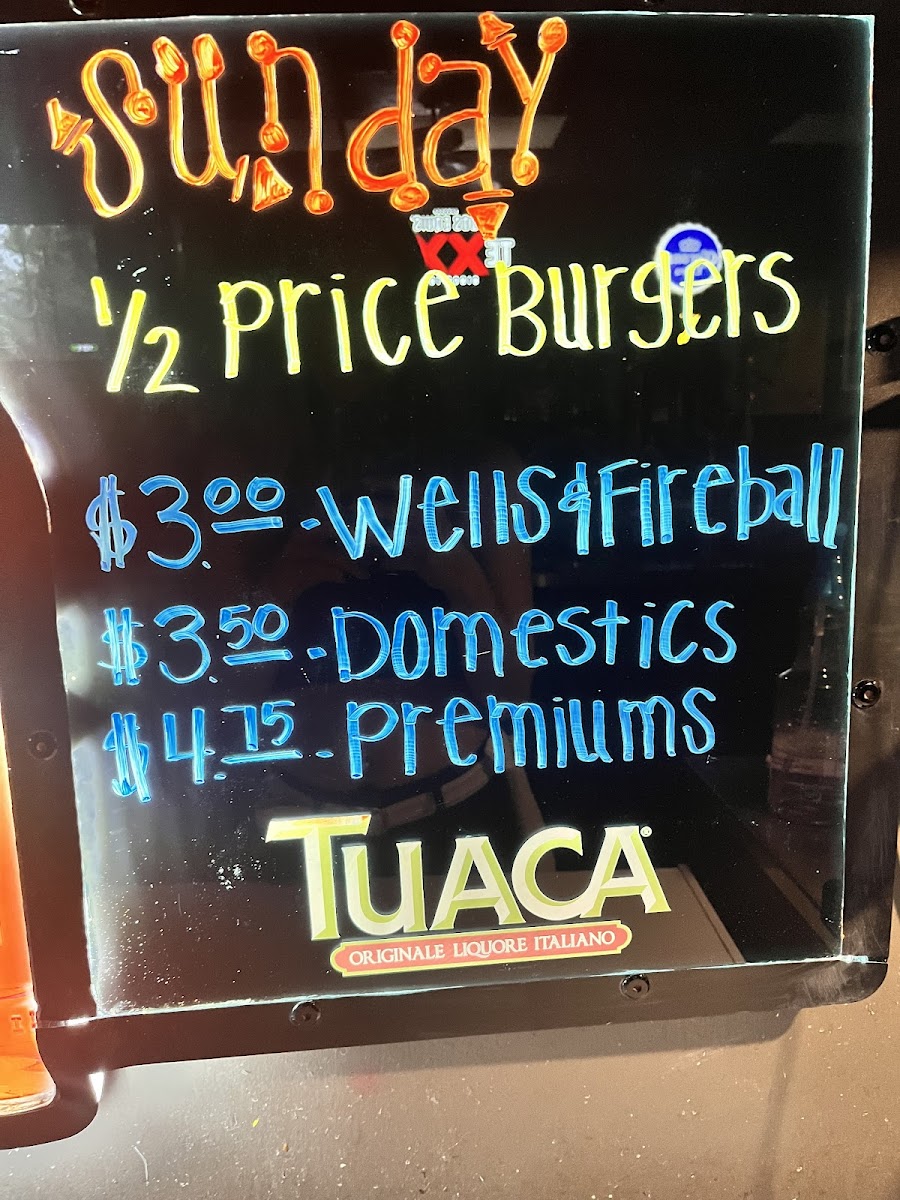 Sunday
XX
1/2 Price Burgers
$3.00 - Wells & Fireball
$3.50 - Domestics
$4.75 - Premiums
TUACA®
ORIGINALE LIQUORE ITALIANO